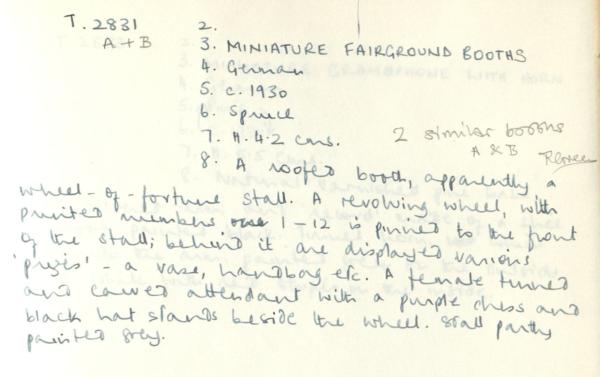 T. 2831
A + B
2.
3. MINIATURE FAIRGROUND BOOTHS
4. German
5. c. 1930
6. Spruce
7. H. 4.2 cms.
2 similar booths
A & B
8. A roofed booth, apparently a
wheel-of-fortune stall. A revolving wheel, with
printed numbers 1-12 is pinned to the front
of the stall; behind it are displayed various
'prizes' - a vase, handbag etc. A female turned
and carved attendant with a purple dress and
black hat stands beside the wheel. Stall partly
painted grey.